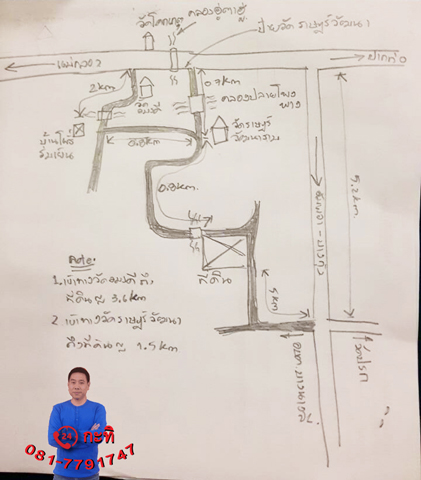 วัดโคกเกตุ
คลองผู้ตาผู้
ป้ายวัดราษฎร์วัฒนา
แม่กลอง
ปากท่อ
2 km
0.7 km
คลองปลายโพงพาง
วัดราษฎร์
วัฒนาราม
0.8 km
0.8 km.
5.2 km
ที่ดิน
5 km
Note:
1. เข้าทางวัดอมรดี ถึง
ที่ดินฯ 3.6 km
2. เข้าทางวัดราษฎร์วัฒนา
ถึงที่ดินฯ 1.5 km
24 กะทิ
081-7791747